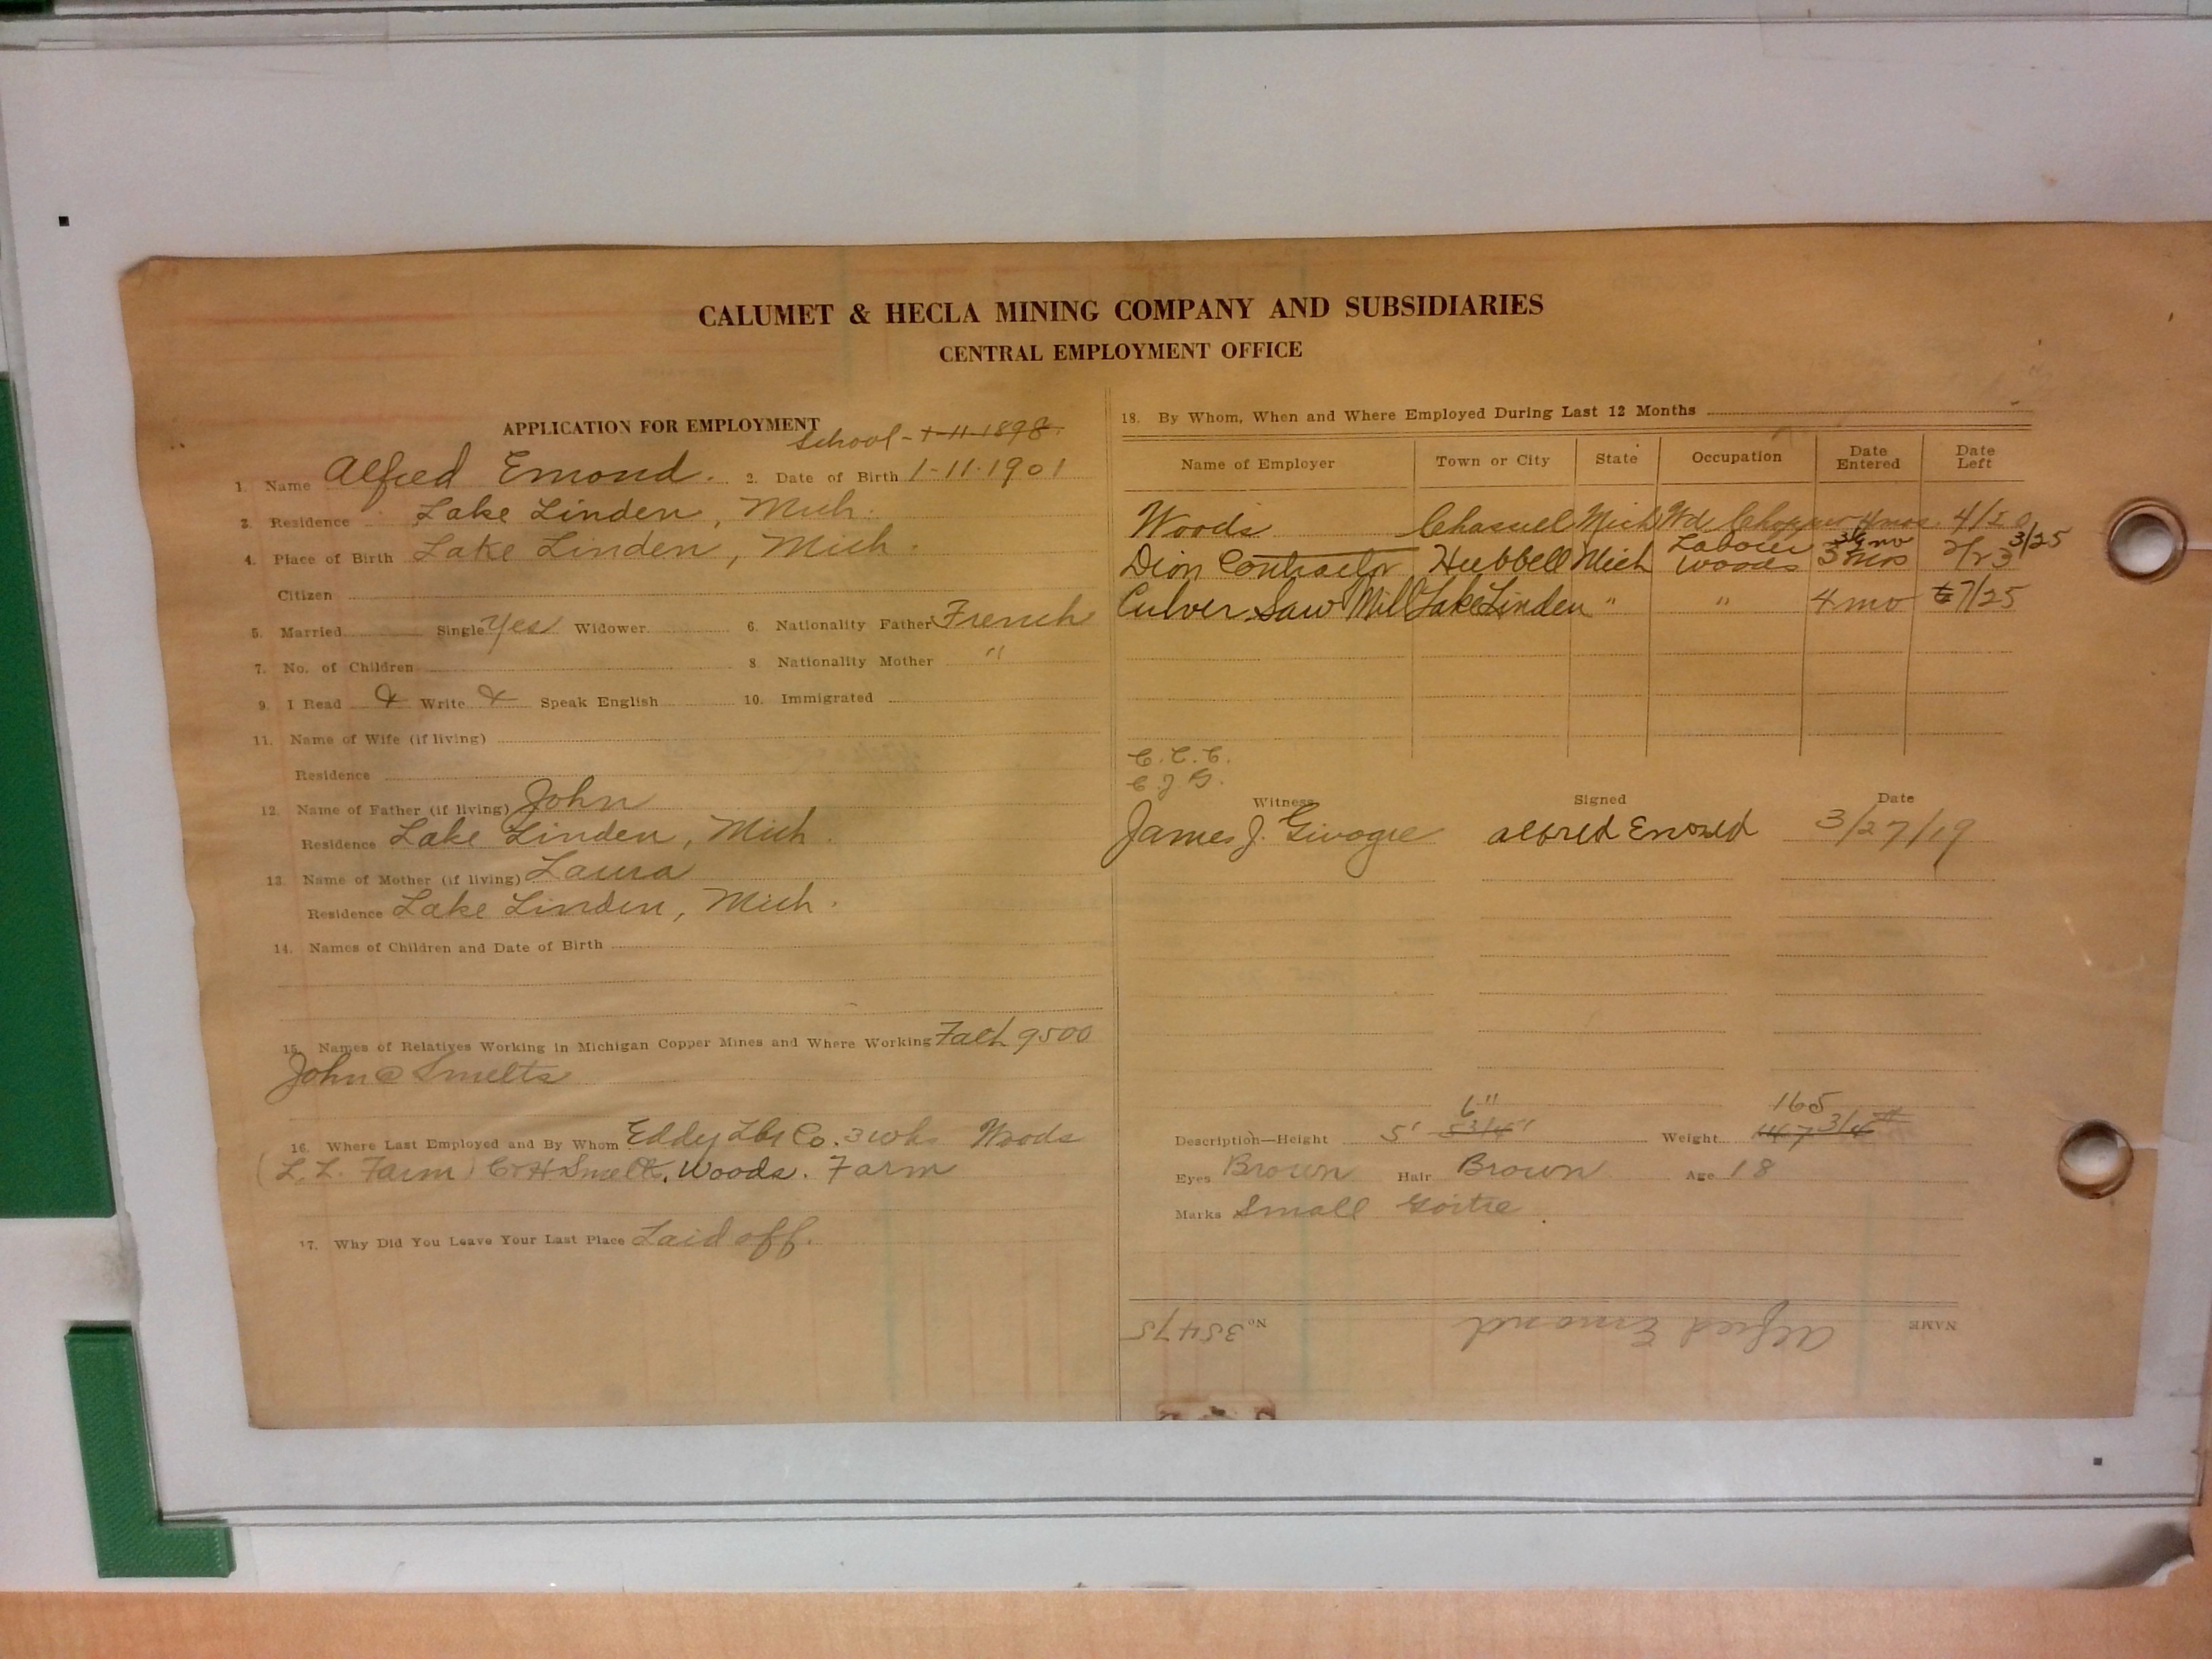 CALUMET & HECLA MINING COMPANY AND SUBSIDIARIES
CENTRAL EMPLOYMENT OFFICE
APPLICATION FOR EMPLOYMENT
School - 1-11-1898.
1. Name Alfred Emond. 2. Date of Birth 1-11-1901
3. Residence Lake Linden, Mich.
4. Place of Birth Lake Linden, Mich.
Citizen
5. Married Single Yes Widower 6. Nationality Father French
7. No. of Children 8. Nationality Mother "
9. I Read Write Speak English 10. Immigrated
11. Name of Wife (if living)
Residence
12. Name of Father (if living) John
Residence Lake Linden, Mich.
13. Name of Mother (if living) Laura
Residence Lake Linden, Mich.
14. Names of Children and Date of Birth
15. Names of Relatives Working in Michigan Copper Mines and Where Working Fath 9500
John @ Smelts
16. Where Last Employed and By Whom Eddy Lbr Co. 3 wks Woods
(L. L. Farm) C&H Smelt. Woods. Farm
17. Why Did You Leave Your Last Place Laid off.
18. By Whom, When and Where Employed During Last 12 Months
Name of Employer Town or City State Occupation Date Entered Date Left
Woods Chassell Mich Wd Chopper 4 mos
Labour 3/25
Dion Contractor Hubbell Mich Woods 3 mos
Culver Saw Mill Lake Linden " " 4 mo 7/25
C. C. C.
C. J. G.
Witness Signed Date
James J. alfred Emond 3/27/19
6" 165
Description—Height 5' 5 3/4" Weight 147 3/4 #
Eyes Brown Hair Brown Age 18
Marks Small Goitre.
NAME Alfred Emond No. 35475